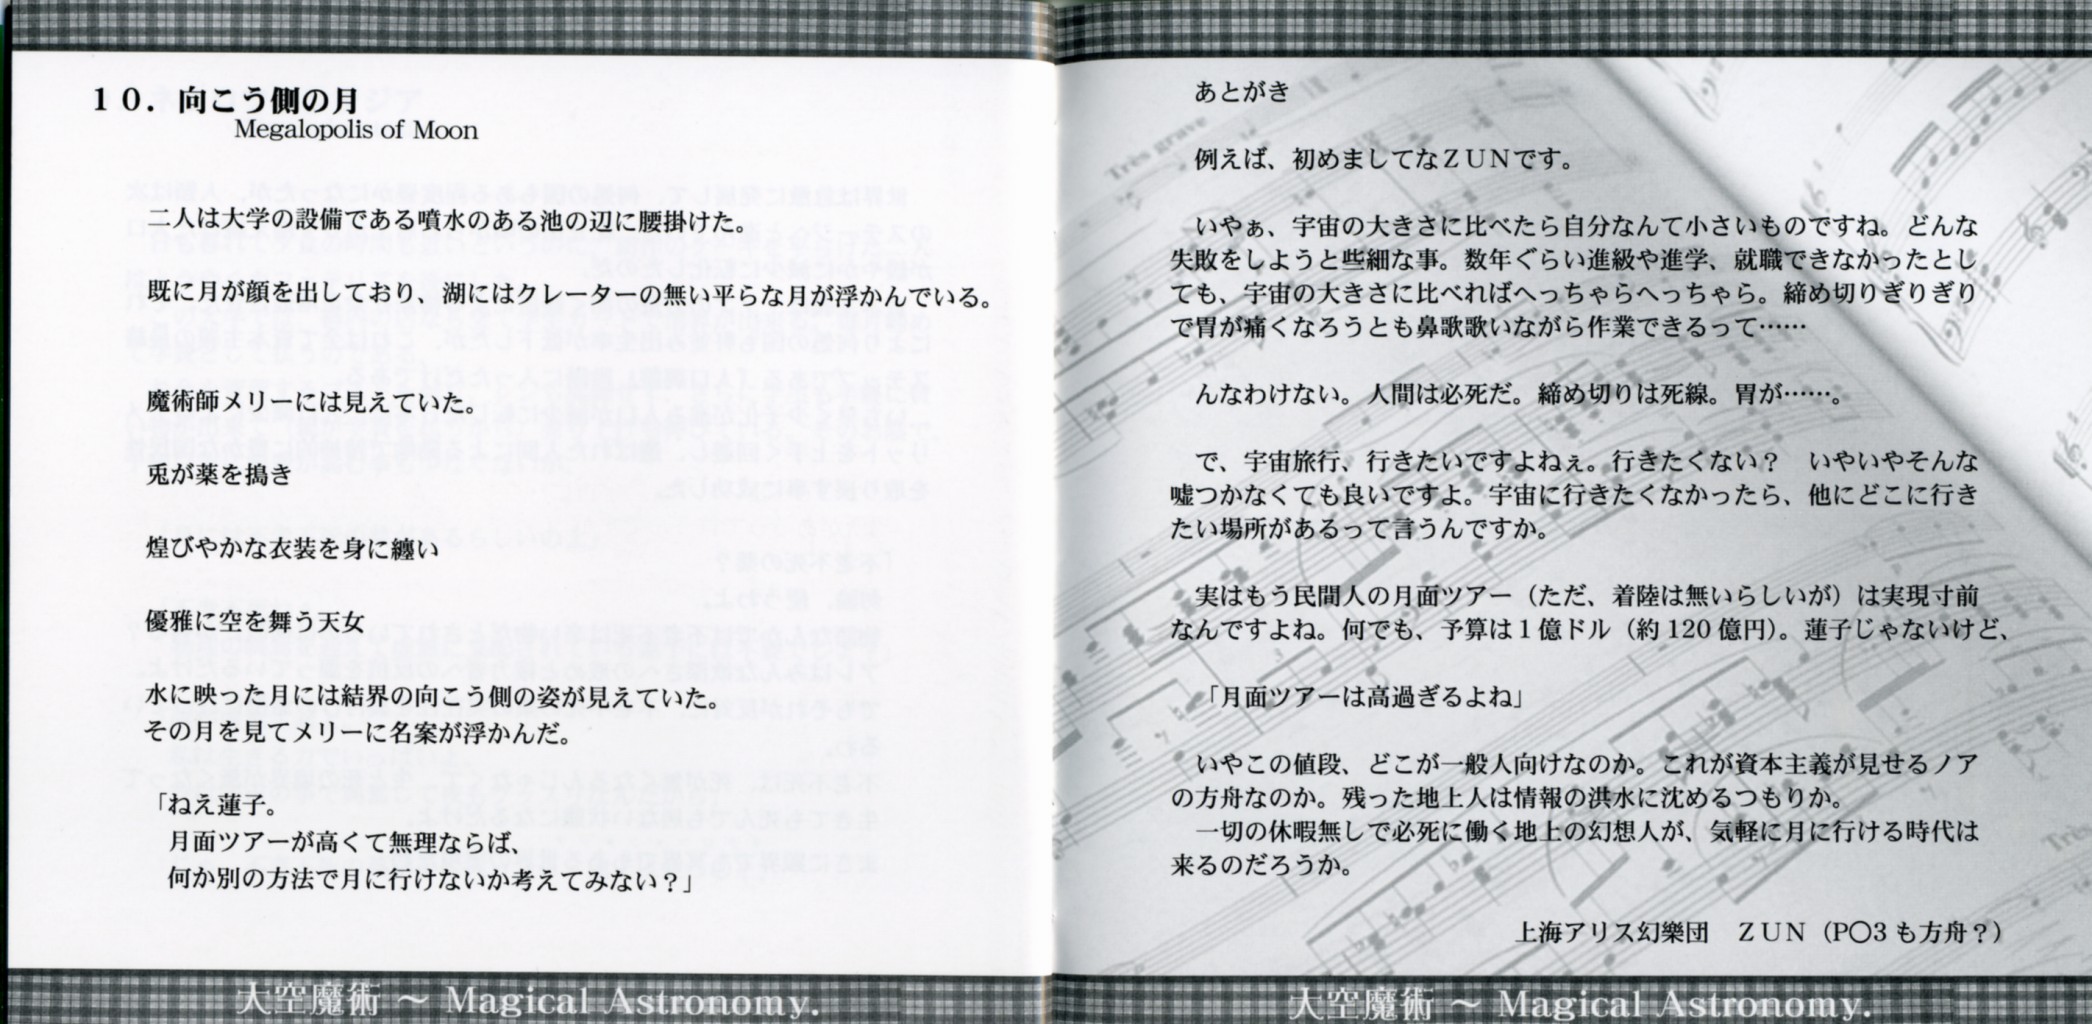 １０．向こう側の月
Megalopolis of Moon
二人は大学の設備である噴水のある池の辺に腰掛けた。
既に月が顔を出しており、湖にはクレーターの無い平らな月が浮かんでいる。
魔術師メリーには見えていた。
兎が薬を搗き
煌びやかな衣装を身に纏い
優雅に空を舞う天女
水に映った月には結界の向こう側の姿が見えていた。
その月を見てメリーに名案が浮かんだ。
「ねえ蓮子。
月面ツアーが高くて無理ならば、
何か別の方法で月に行けないか考えてみない？」
大空魔術 ～ Magical Astronomy.
あとがき
例えば、初めましてなＺＵＮです。
いやぁ、宇宙の大きさに比べたら自分なんて小さいものですね。どんな
失敗をしようと些細な事。数年ぐらい進級や進学、就職できなかったとし
ても、宇宙の大きさに比べればへっちゃらへっちゃら。締め切りぎりぎり
で胃が痛くなろうとも鼻歌歌いながら作業できるって……
んなわけない。人間は必死だ。締め切りは死線。胃が……。
で、宇宙旅行、行きたいですよねぇ。行きたくない？　いやいやそんな
嘘つかなくても良いですよ。宇宙に行きたくなかったら、他にどこに行き
たい場所があるって言うんですか。
実はもう民間人の月面ツアー（ただ、着陸は無いらしいが）は実現寸前
なんですよね。何でも、予算は１億ドル（約 120 億円）。蓮子じゃないけど、
「月面ツアーは高過ぎるよね」
いやこの値段、どこが一般人向けなのか。これが資本主義が見せるノア
の方舟なのか。残った地上人は情報の洪水に沈めるつもりか。
一切の休暇無しで必死に働く地上の幻想人が、気軽に月に行ける時代は
来るのだろうか。
上海アリス幻樂団　ＺＵＮ（P〇3 も方舟？）
大空魔術 ～ Magical Astronomy.
Très grave